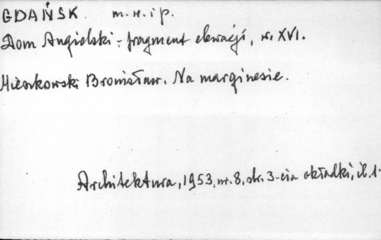 GDAŃSK m. w. i p.
Dom Angielski - fragment elewacji, w. XVI.
Mieszkowski Bronisław. Na marginesie.
Architektura, 1953, nr. 8, str. 3-cia okładki, il. 1.